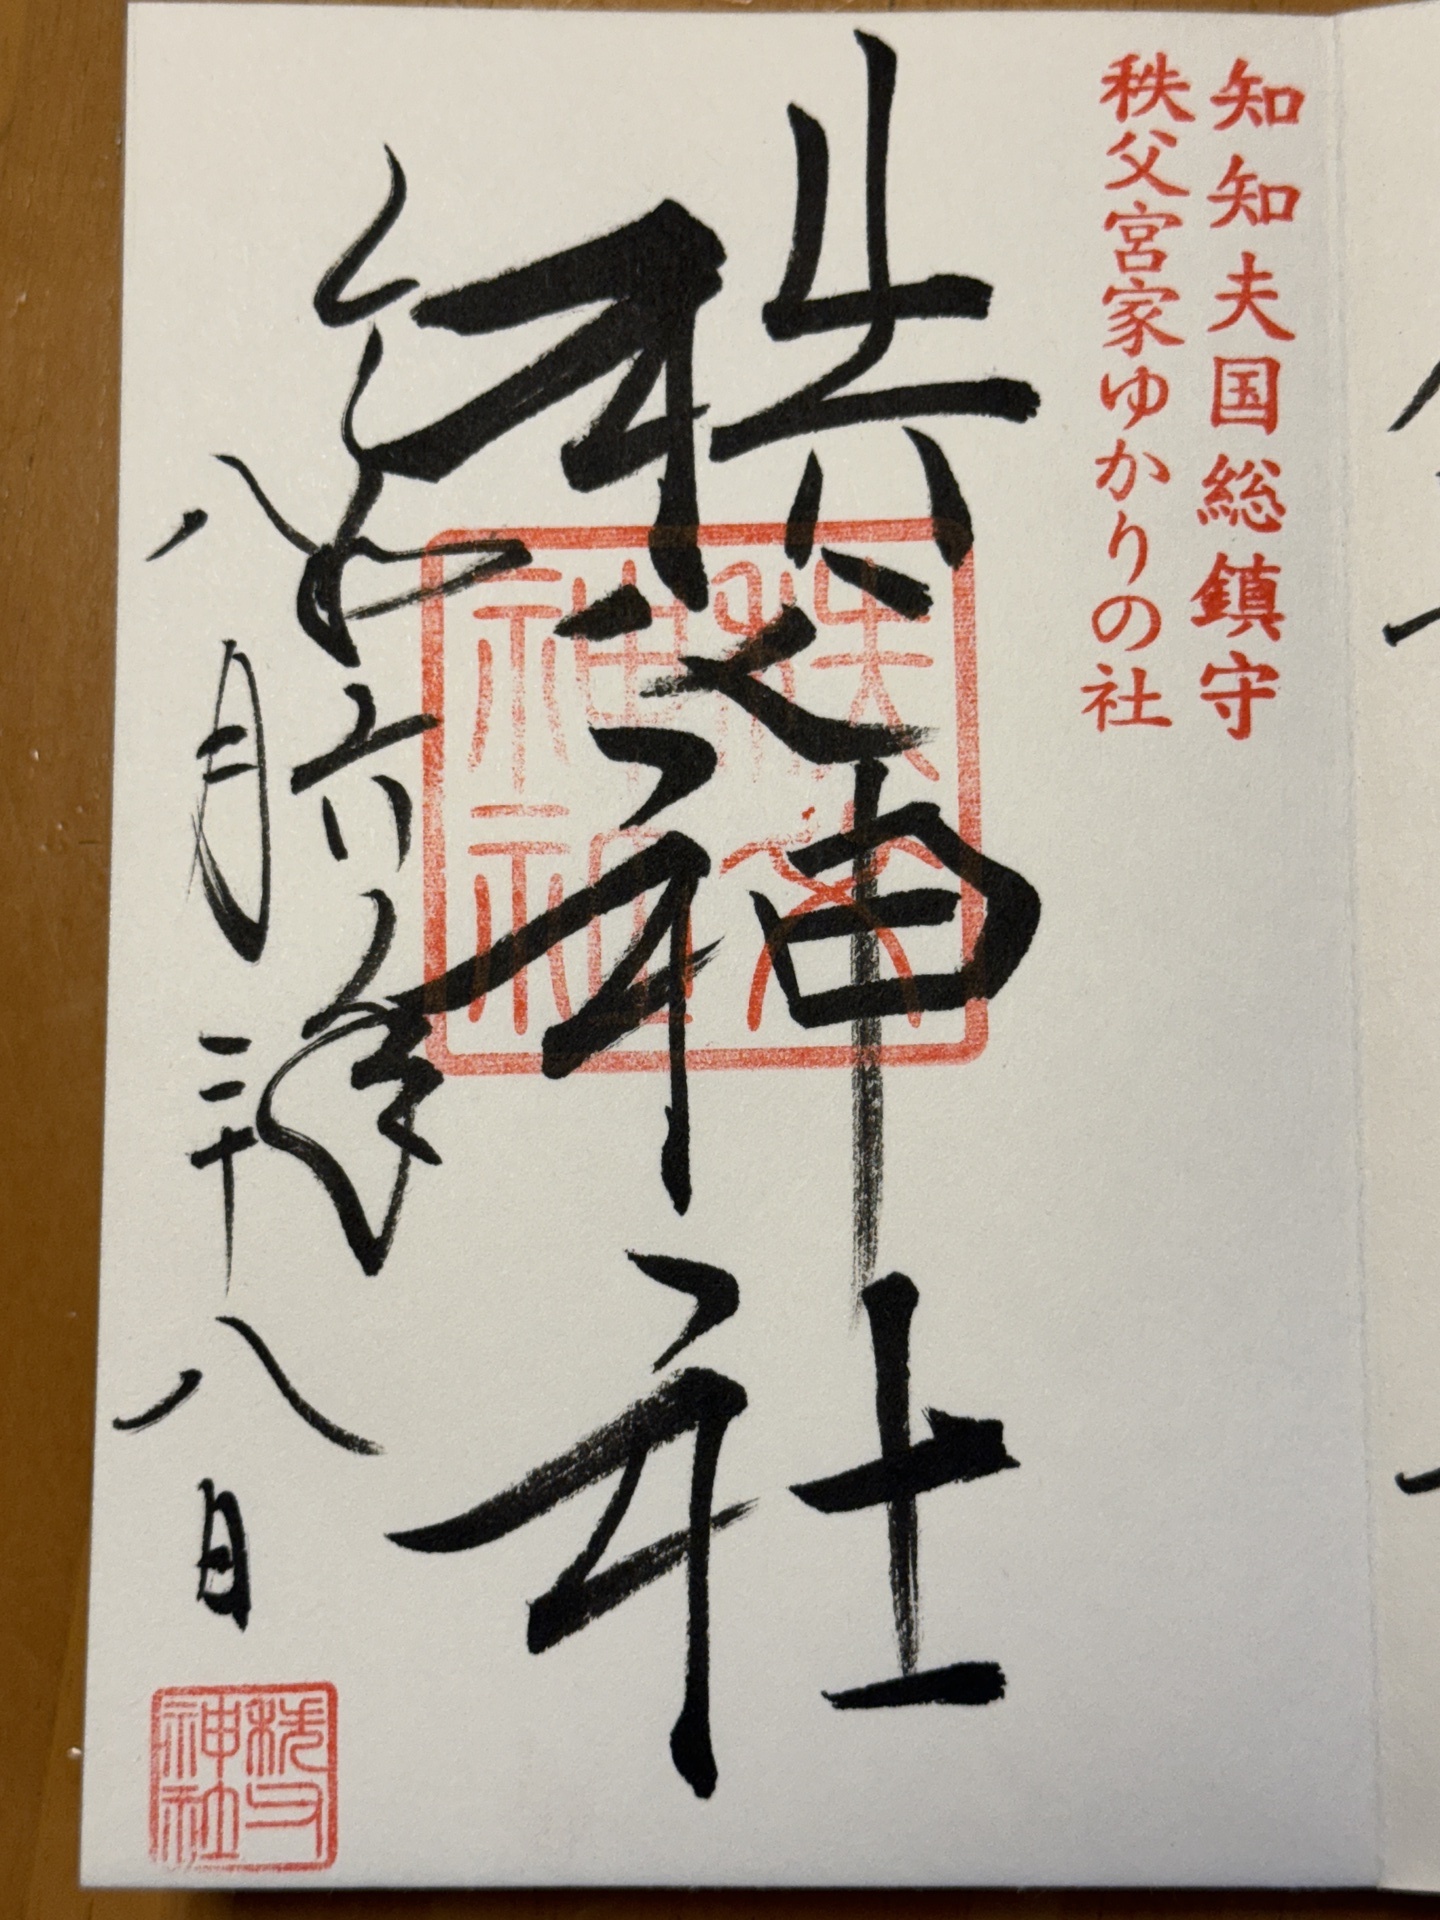 知知夫国総鎮守
秩父宮家ゆかりの社
秩父神社
秩父神社
令和六年
八月二十八日
秩父神社